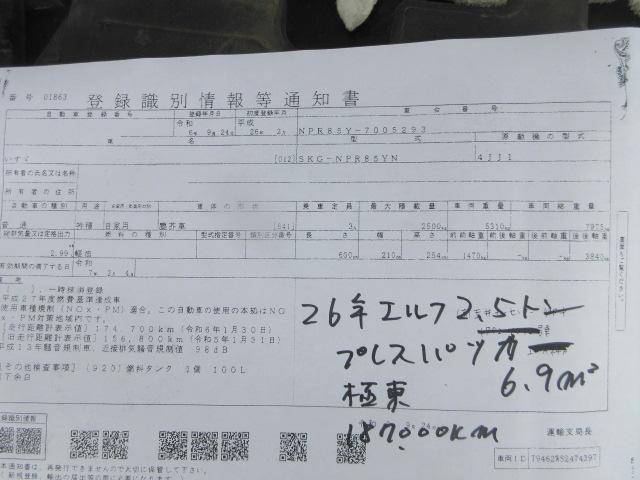 番号 01863 登録識別情報等通知書
自動車登録番号 登録年月日 初度登録年月 車台番号
令和 平成
6年 9月 24日 26年 2月 NPR85Y-7005293
車名 型式 原動機の型式
いすゞ [012] SKG-NPR85YN 4JJ1
所有者の氏名又は名称
所有者の住所
自動車の種別 用途 自家用・事業用の別 車体の形状 乗車定員 最大積載量 車両重量 車両総重量
普通 特種 自家用 塵芥車 [541] 3人 2500kg 5310kg 7975kg
総排気量又は定格出力 燃料の種別 型式指定番号 類別区分番号 長さ 幅 高さ 前前軸重 前後軸重 後前軸重 後後軸重
2.99 軽油 600cm 210cm 254cm 1470kg 3840kg
有効期間の満了する日 令和
7年 2月 4日
備考
一時抹消登録
平成27年度燃費基準達成車
使用車種規制（NOx・PM）適合。この自動車の使用の本拠はNO
x・PM対策地域内です。
[走行距離計表示値] 174,700km（令和6年1月30日）
[旧走行距離計表示値] 156,800km（令和5年1月31日）
平成13年騒音規制車、近接排気騒音規制値 98dB
[その他検査事項] (920) 燃料タンク 個 100L
以下余白
26年エルフ2.5トン
プレスパッカー
極東 6.9m³
187,000KM
登録識別情報
運輸支局長
車両ID 79462WS2474397
本通知書は、再発行できませんので大切に保管して下さい。
裏面もご覧ください